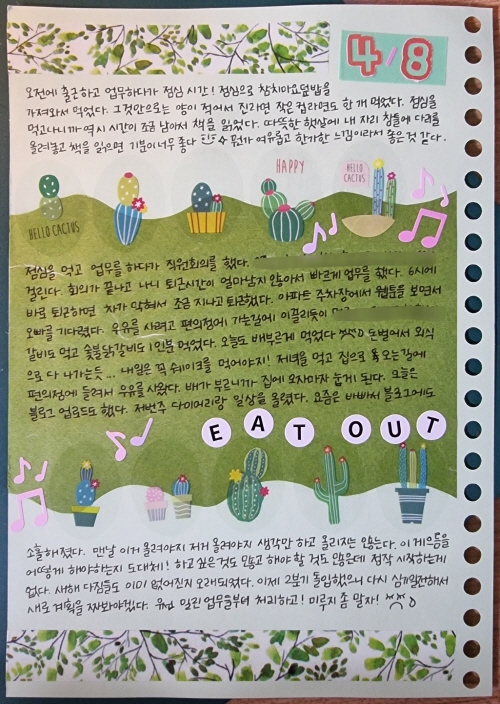 4/8
오전에 출근하고 업무하다가 점심 시간! 점심으로 참치마요덮밥을
가져와서 먹었다. 그것만으로는 양이 적어서 진라면 작은 컵라면도 한 개 먹었다. 점심을
먹고나니까 역시 시간이 조금 남아서 책을 읽었다. 따뜻한 햇살에 내 자리 창틀에 다리를
올려놓고 책을 읽으면 기분이 너무 좋다 뭔가 여유롭고 한가한 느낌이라서 좋은것 같다.
HAPPY
HELLO CACTUS
HELLO CACTUS
점심을 먹고 업무를 하다가 직원회의를 했다.
걸린다. 회의가 끝나고 나니 퇴근시간이 얼마남지 않아서 빠르게 업무를 했다. 6시에
바로 퇴근하면 차가 막혀서 조금 지나고 퇴근했다. 아파트 주차장에서 웹툰을 보면서
오빠를 기다렸다. 우유를 사려고 편의점에 가는길에 이끌리듯이
갈비도 먹고 숯불닭갈비도 1인분 먹었다. 오늘도 배부르게 먹었다 돈벌어서 외식
으로 다 나가는듯... 내일은 꼭 쉐이크를 먹어야지! 저녁을 먹고 집으로 오는길에
편의점에 들려서 우유를 사왔다. 배가 부르니까 집에 오자마자 눕게 된다. 오늘은
블로그 업로드도 했다. 저번주 다이어리랑 일상을 올렸다. 요즘은 바빠서 블로그에도
EAT OUT
소홀해졌다. 맨날 이거 올려야지 저거 올려야지 생각만 하고 올리지는 않는다. 이 게으름을
어떻게 해야하는지 도대체! 하고싶은것도 많고 해야 할 것도 많은데 정작 시작하는게
없다. 새해 다짐들도 이미 없어진지 오래되었다. 이제 2분기 돌입했으니 다시 심기일전해서
새로 계획을 짜봐야겠다. 밀린 업무들부터 처리하고! 미루지 좀 말자!